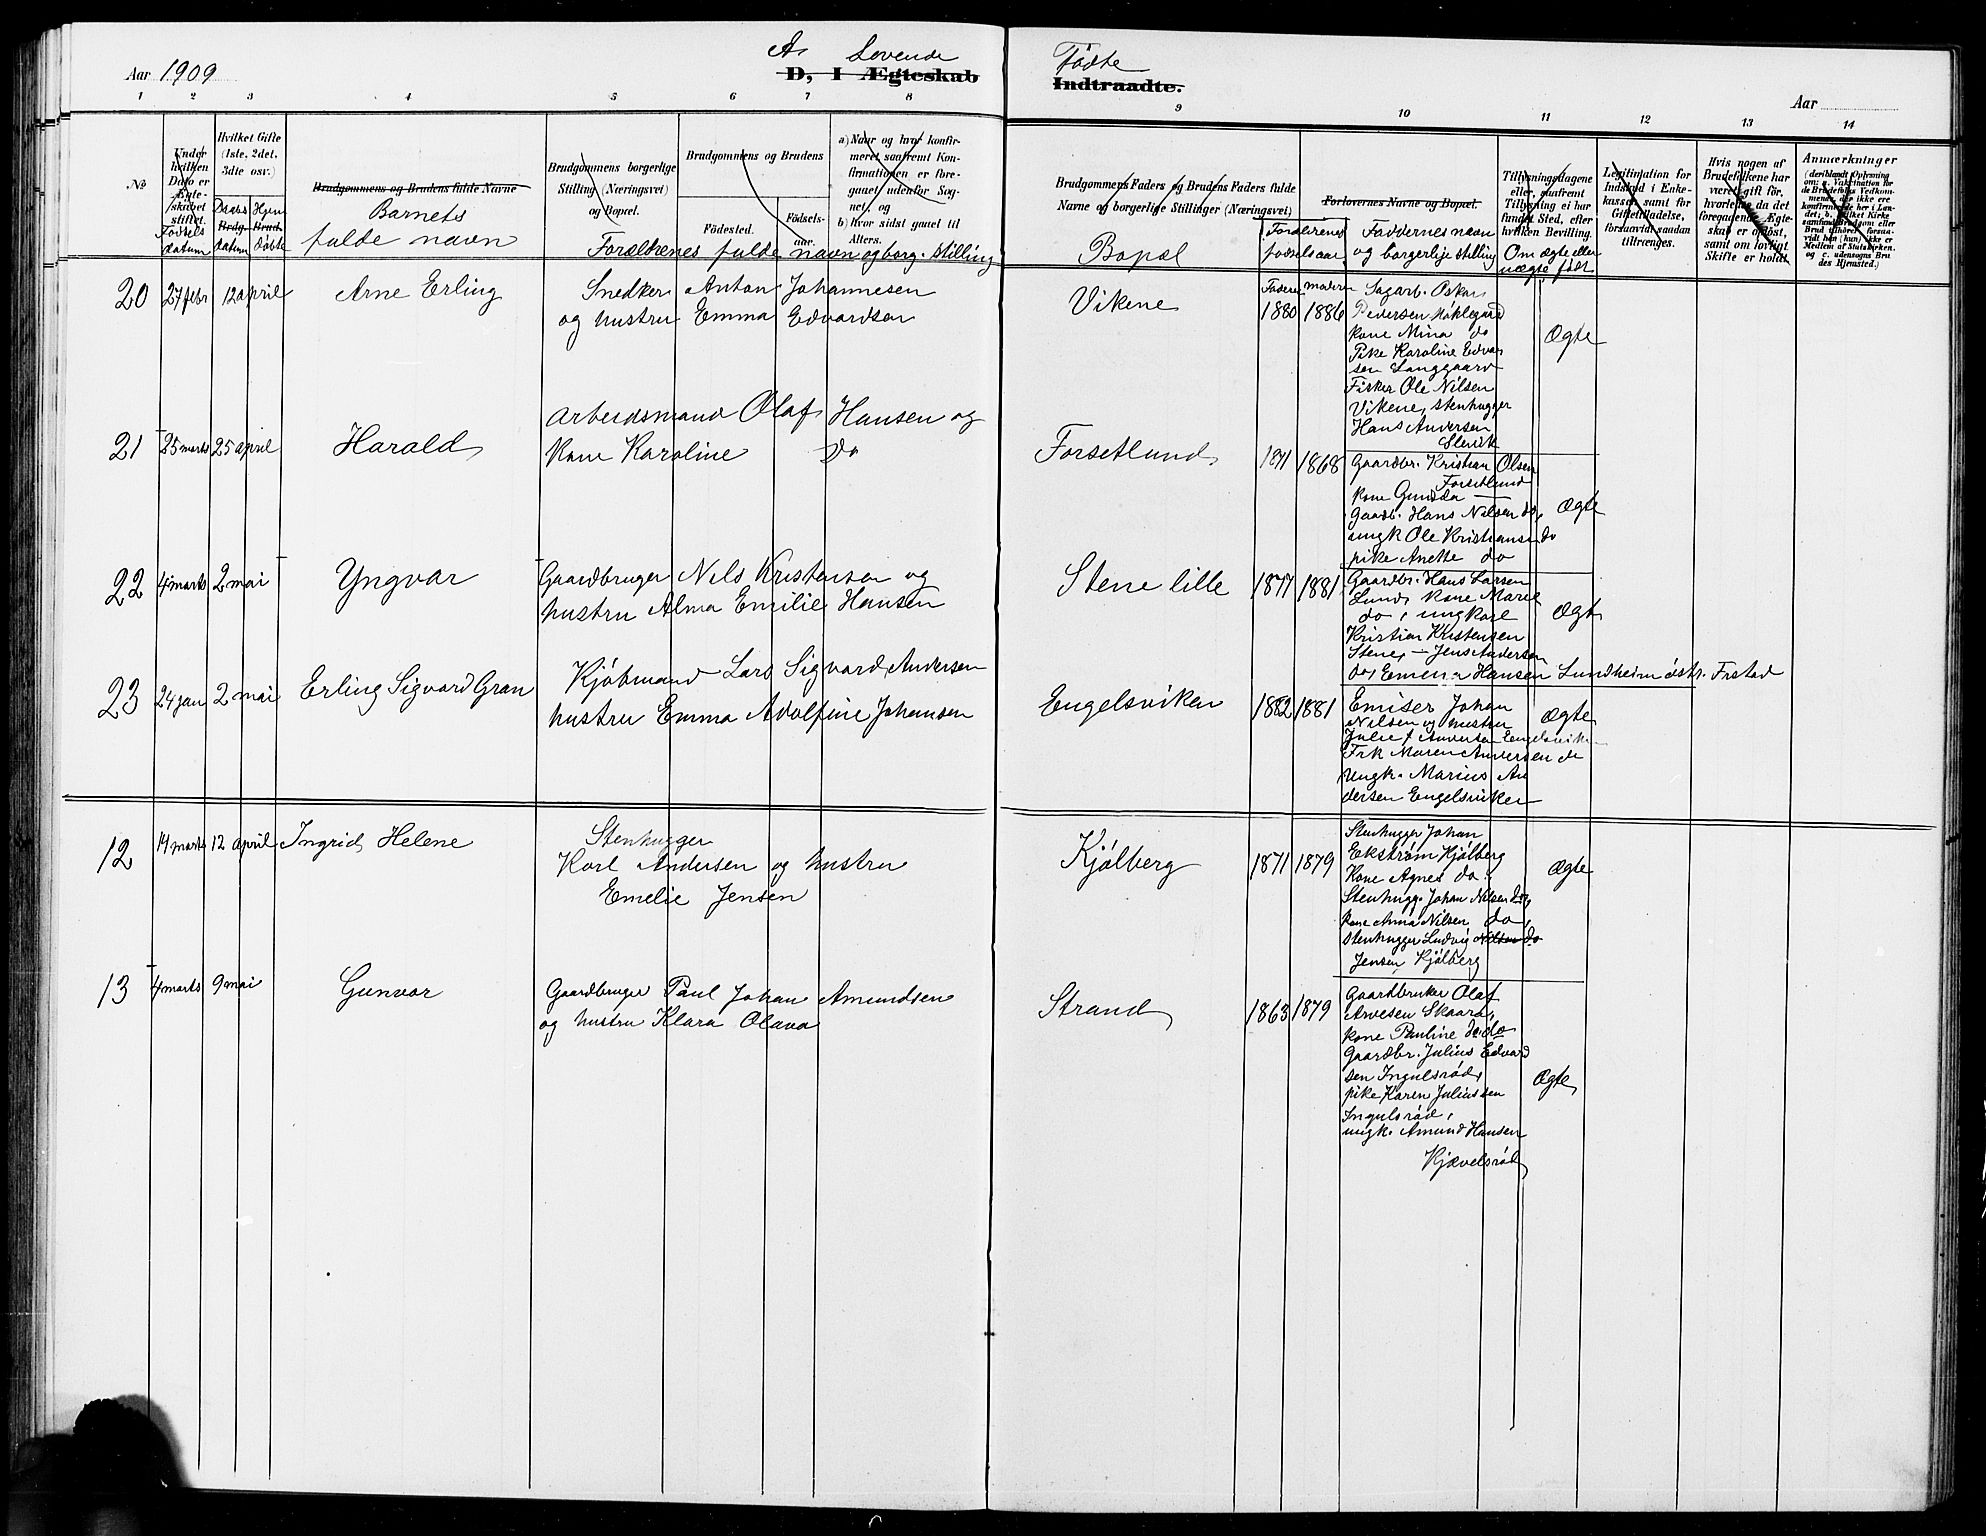 Aar 1909
A. Levende
D, I Ægteskab
Fødte
Indtraadte.
Aar
1 2 3 4 5 6 7 8 9 10 11 12 13 14
No
Under hvilken Dato er Ægteskabet stiftet.
Fødsels datum
Hvilket Gifte (1ste, 2det, 3dte osv.)
Brdg. Brud.
Daabs datum
Hjem døbte
Brudgommens og Brudens fulde Navne
Barnets
fulde navn
Brudgommens borgerlige Stilling (Næringsvei) og Bopæl.
Brudgommens og Brudens
Födested.
Födsels-aar.
Forældrenes fulde navn og borg. stilling
a) Naar og hvor konfirmeret saafremt Konfirmationen er foregaaet udenfor Sognet, og
b) hvor sidst gaaet til Alters.
Brudgommens Faders og Brudens Faders fulde Navne og borgerlige Stillinger (Næringsvei)
Bopæl
Forældrenes fødselsaar
Forlovernes Navne og Bopæl.
Faddernes navn
og borgerlige stilling
Tillysningsdagene eller, saafremt Tillysning ei har fundet Sted, efter hvilken Bevilling.
Om ægte eller uægte født
Legitimation for Indskud i Enkekassen, samt for Giftetilladelse, forsaavidt saadan tiltrænges.
Hvis nogen af Brudefolkene har været gift før, hvorledes da det foregaaende Ægteskab er opløst, samt om lovligt Skifte er holdt.
Anmærkninger
(deriblandt Oplysning om: a. Vakcination for de Brudefolks Vedkommende, der ikke ere konfirmerede her i Landet; b. hvilket Kirkesamfund Brudgom eller Brud tilhører forsaavidt han (hun) ikke er Medlem af Statskirken. og c. udensogns Brudes Hjemsted.)
20 27 febr 12 april Arne Erling
Snedker Anton Johannesen
og hustru Emma Edvardsen
Vikene
Faderen moderen
1880 1886
Sagarb. Oskar
Pedersen Høklegård
kone Mina do
Pike Karoline Edvar
sen Langgaard
Fisker Ole Nilsen
Vikene, stenhugger
Hans Andersen
Slevik
Ægte
21 25 marts 25 april Harald
Arbeidsmand Olaf Hansen og
Kone Karoline do
Forsetlund
1871 1868
Gaardbr. Kristian Olsen
Forsetlund
kone Gunda —
Gaardb. Hans Nilsen do,
ungk Ole Kristiansen do
pike Anette do
Ægte
22 4 marts 2 mai Yngvar
Gaardbruger Nils Kristensen og
hustru Alma Emilie Hansen
Stene lille
1877 1881
Gaardbr. Hans Larsen
Lund, kone Marie
do, ungkarl
Kristian Kristensen
Stene, — Jens Andersen
do, Emma Hansen Lundheim østr. Frstad
Ægte
23 24 jan 2 mai Erling Sigvard Gran
Kjøbmand Lars Sigvard Andersen
hustru Emma Adolfine Johansen
Engelsviken
1882 1881
Emiser Johan
Nilsen og hustru
Julie f Andersen Engelsviken
Frk Maren Andersen do
Ungk. Marius An
dersen Engelsviken
Ægte
12 14 marts 12 april Ingrid Helene
Stenhugger
Karl Andersen og hustru
Emelie Jensen
Kjølberg
1871 1879
Stenhugger Johan
Ekstrøm Kjølberg
Kone Agnes do.
Stenhugg. Johan Nilsen do,
kone Anna Nilsen do,
stenhugger Ludvig Nilsen do
Jensen Kjølberg
Ægte
13 4 marts 9 mai Gunvor
Gaardbruger Paul Johan Amundsen
og hustru Klara Olava
Strand
1863 1879
Gaardbruker Olaf
Arvesen Skaara,
kone Pauline do do
Gaardbr. Julius Edvard
sen Ingulsrød,
pike Karen Juliussen
Ingulsrød,
ungk. Amund Hansen
Kjævelsrød
Ægte